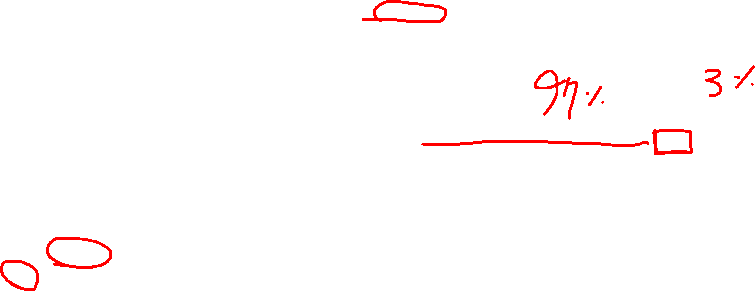 97% 3%